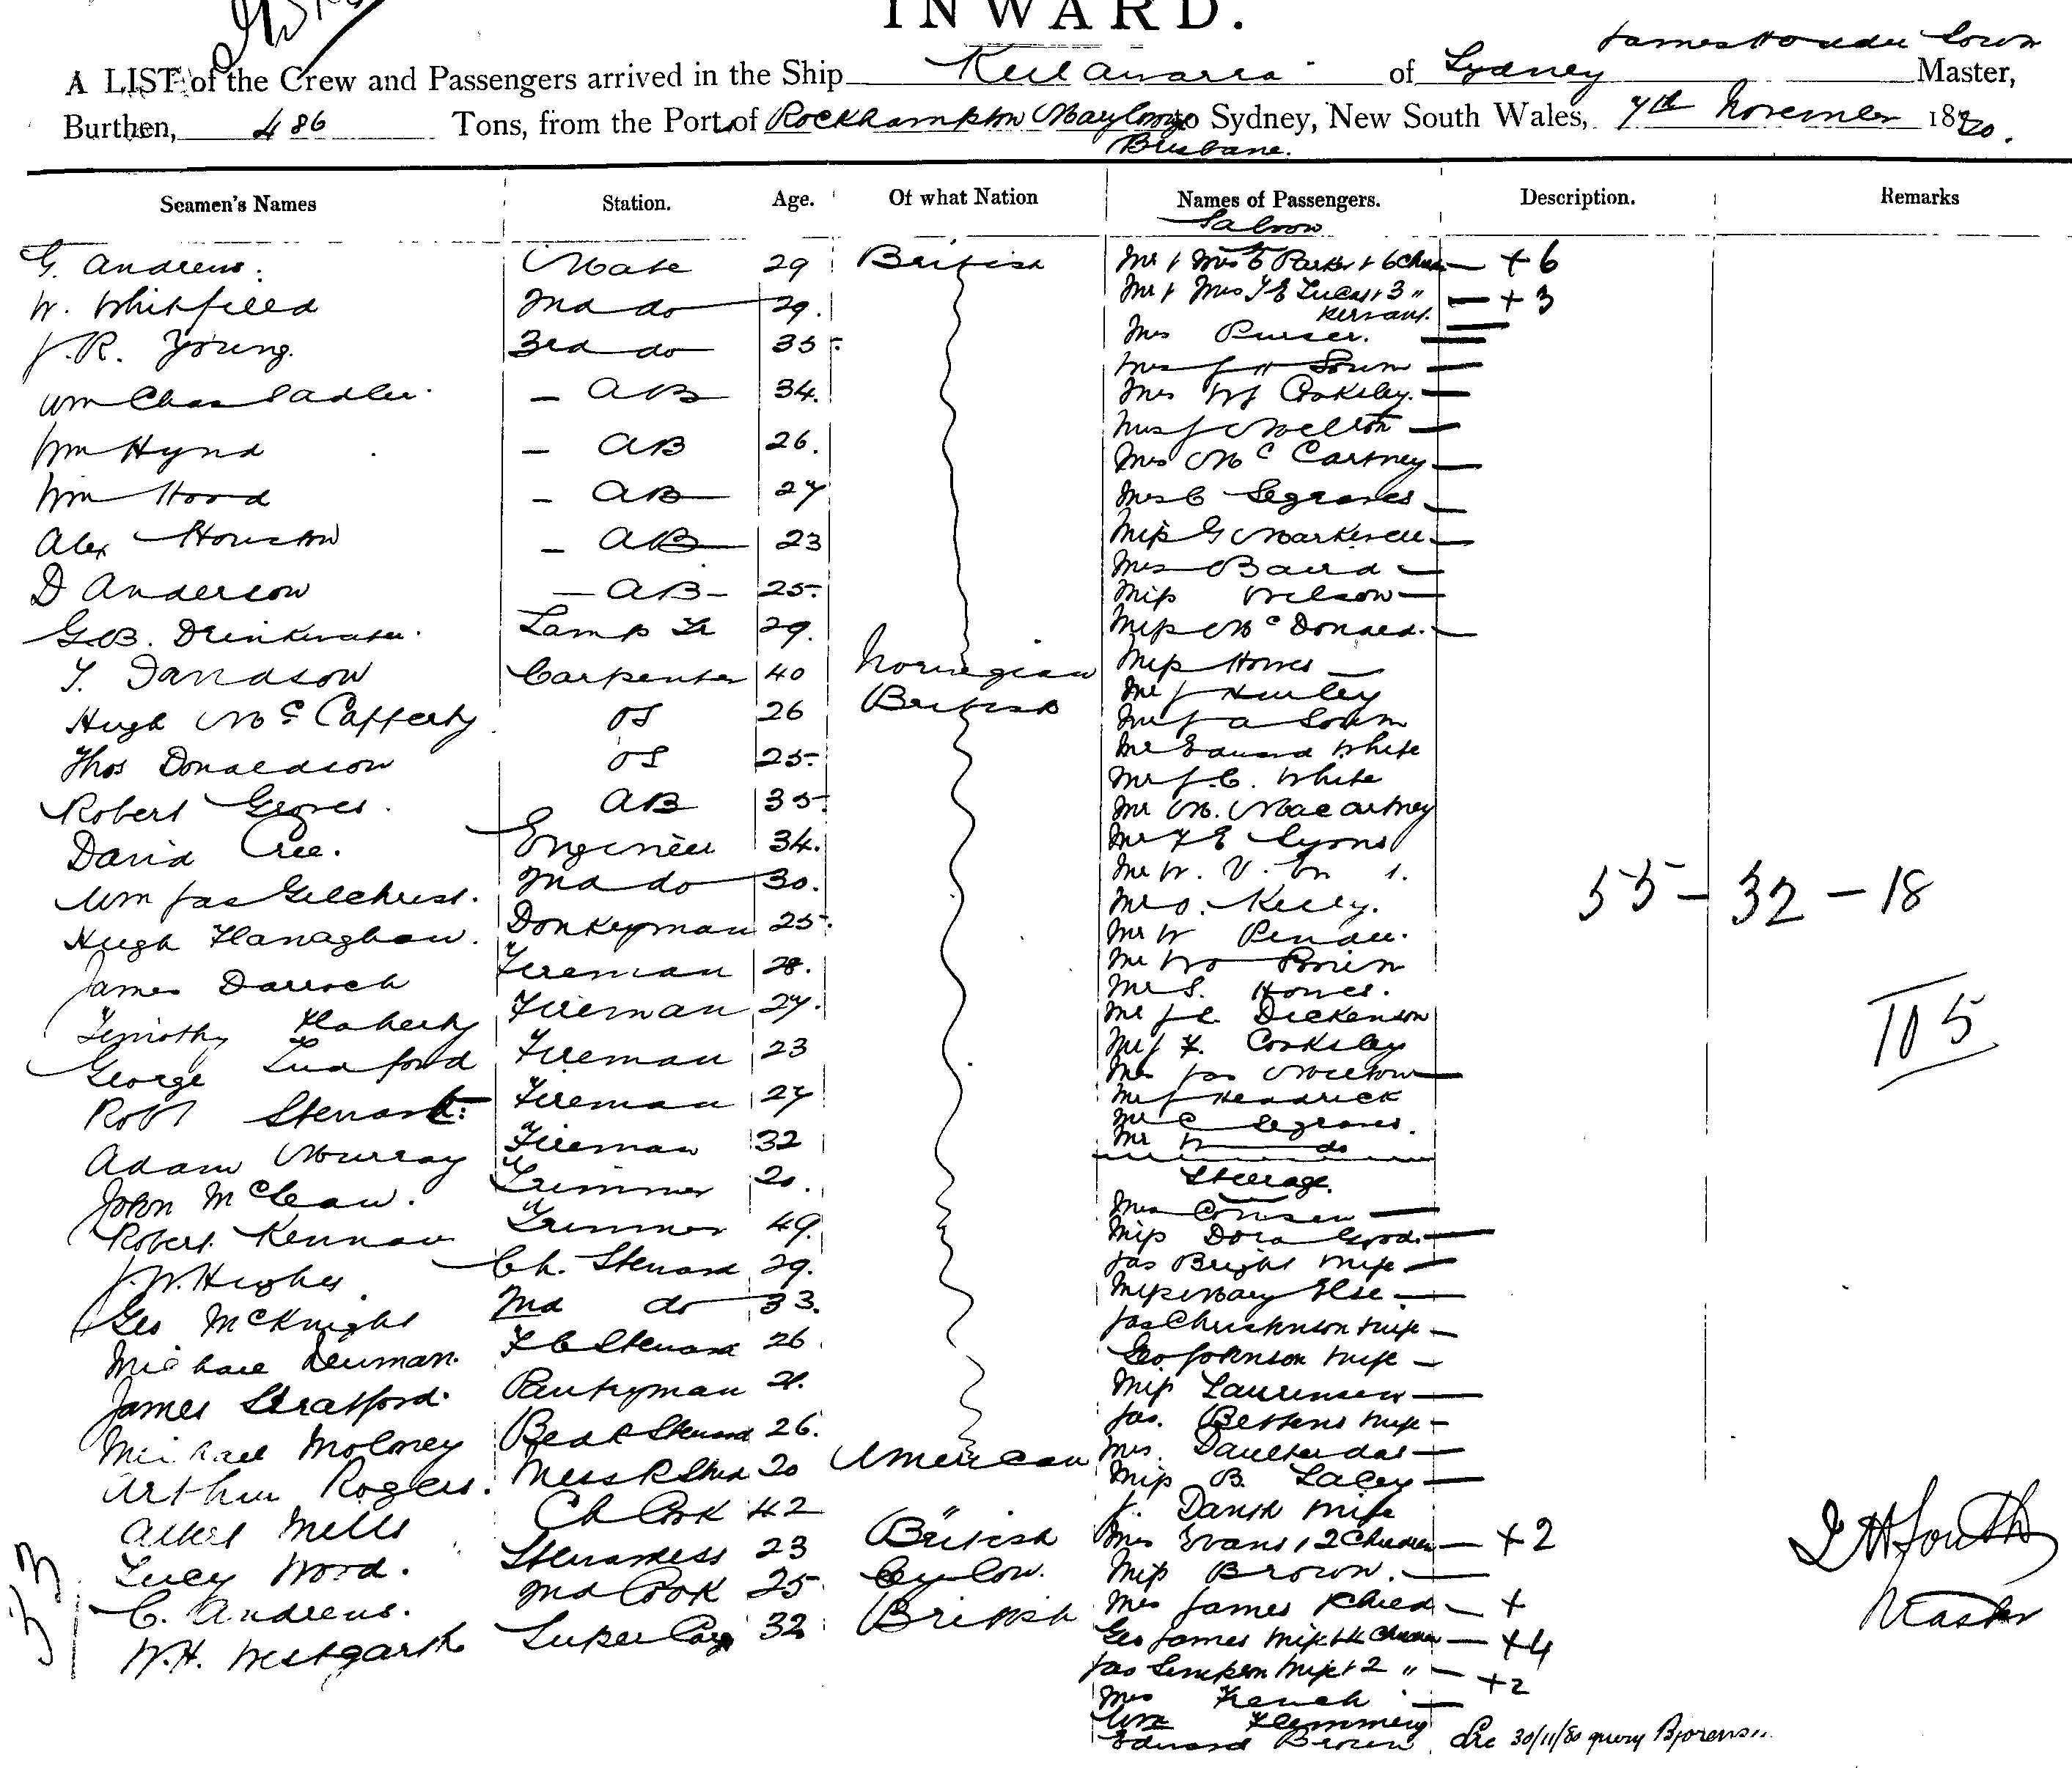 INWARD.
James Hander South
A LIST of the Crew and Passengers arrived in the Ship Keilawarra of Sydney Master,
Burthen, 486 Tons, from the Port of Rockhampton Maryboro to Sydney, New South Wales, 7th November 1880.
Brisbane.
Seamen's Names Station. Age. Of what Nation Names of Passengers. Description. Remarks
Saloon
G. Andrews. Mate 29 British Mr & Mrs Parker & 6 Chn — +6
W. Whitfield 2nd do 29. Mr & Mrs Lucas & 3 " — +3
servant. —
J. R. Young. 3rd do 35 Mrs Purser. —
Wm Chas Sadler. — AB 34. Mrs J H South —
Mrs W J Cooksley. —
Wm Hynd — AB 26. Mrs J Melton —
Mrs Mc Cartney —
Wm Hood — AB 27 Mrs C Segraves —
Alex Houston — AB 23 Miss G Markwell —
Mrs Baird —
D Anderson — AB — 25 Miss Wilson —
G. B. Drinkwater. Lamp Tr 29. Miss Mc Donald. —
T. Davidson Carpenter 40 Norwegian Miss Howes —
Mr J Hurley
Hugh Mc Cafferty OS 26 British Mr J A South
Thos Donaldson OS 25 Mr Edward White
Mr J. C. White
Robert Groves. AB 35 Mr M. Macartney
David Cree. Engineer 34. Mr F E Lyons
Wm Jas Gilchrist. 2nd do 30. Mr W. V.
Mr O. Kelly.
55 — 32 — 18
Hugh Flanaghan. Donkeyman 25 Mr W
James Darroch Fireman 28. Mr
Mr S. Howes.
Timothy Flaherty Fireman 27. Mr J C. Dickenson
George Luxford Fireman 23 Mr J F. Cooksley
105
Mrs Jas Melton —
Robt Stewart. Fireman 27 Mr J Headrick
Mr C Segraves.
Adam Murray Fireman 32 Mr W do
John McLean. Trimmer 20. Steerage.
Robert Kennan Trimmer 49. Mrs —
Miss Dora Good. —
J. W. Hughes Ch. Steward 29. Jas Bright wife —
Geo McKnight 2nd do 33. Miss Mary Else. —
Jas Christinson wife —
Michael Dewman. F C Steward 26 Geo Johnson wife —
James Stratford. Pantryman 21. Miss Laurensen —
Jas. Bettens wife —
Michael Moloney Bed R Steward 26. Mrs —
Arthur Rogers. Mess R Stwd 20 American Miss B. Lacey —
Albert Mells Ch Cook 42 " J. Danth wife
Lucy Wood. Stewardess 23 British Mrs Evans & 2 Children — +2
C. Andrews. 2nd Cook 25 Ceylon. Miss Brown. —
W. H. Westgarth Super Cargo 32 British Mrs James & child — +
33
Geo James wife & 4 Children — +4
Jas Simpson wife & 2 " — +2
Mrs French —
Wm Flemming
Edward Brown
30/11/80 query Bjorensu
J H South
Master